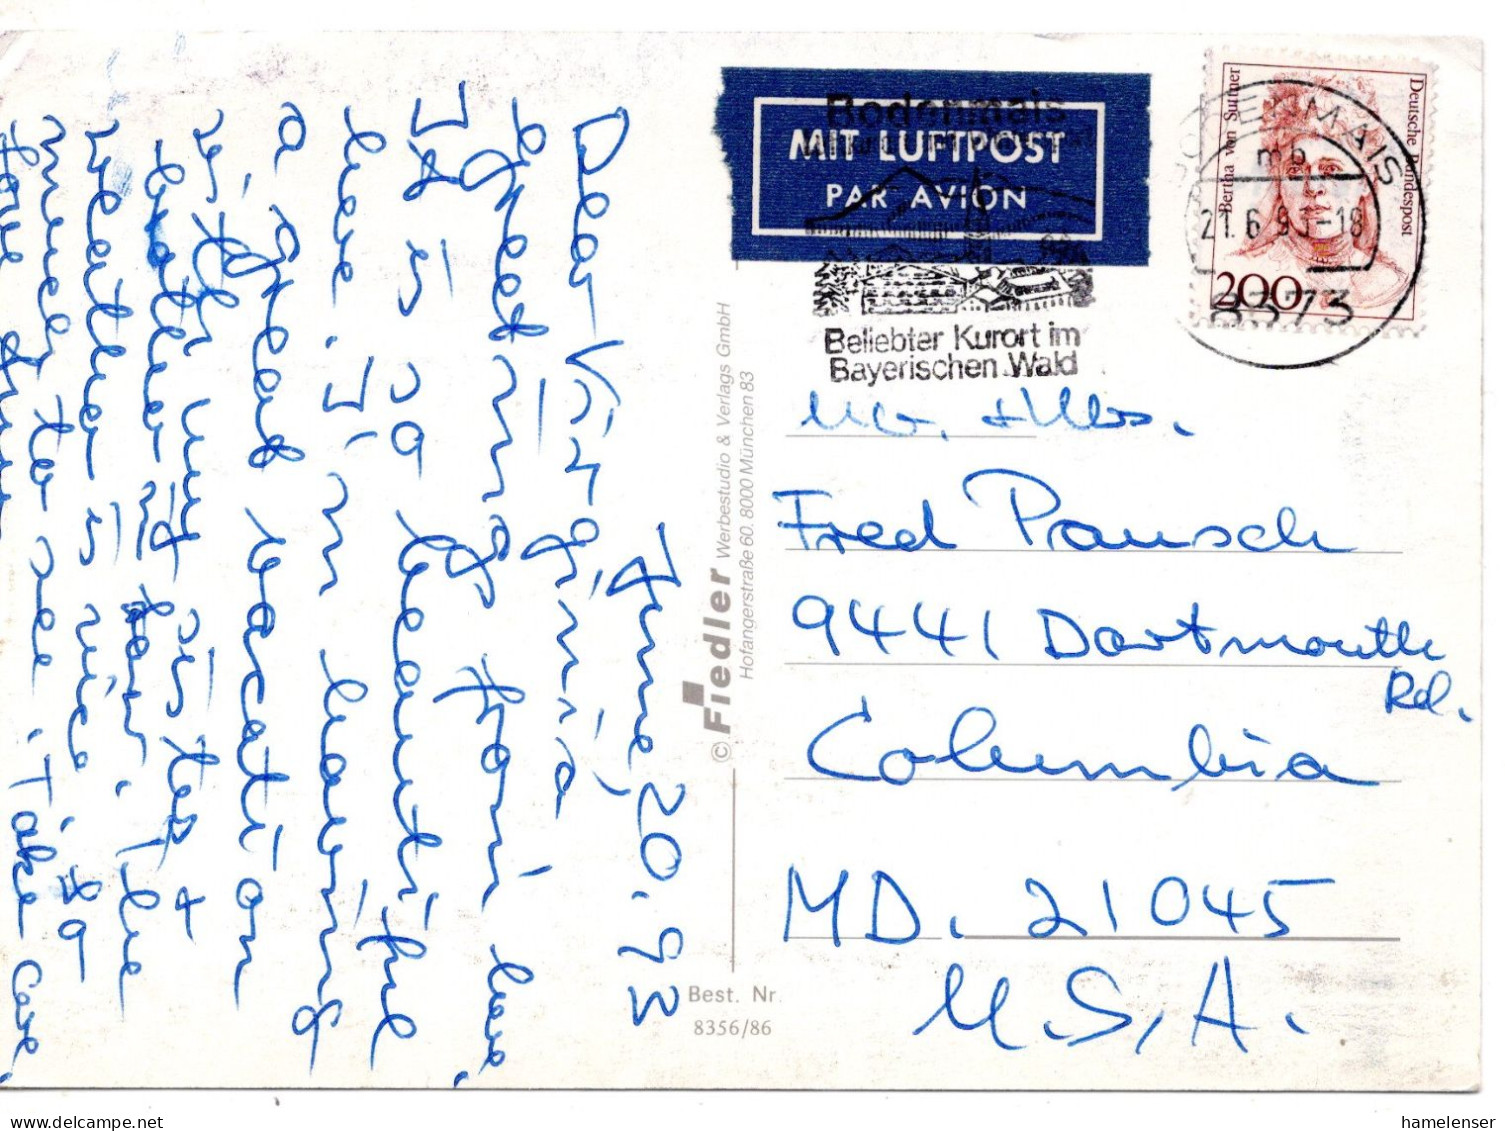 June 20. 93
Dear Virginia
Greetings from here.
It is so beautiful
here. I'm having
a great vacation
with my sister +
brother in law. The
weather is nice. So
much to see. Take care
Love
MIT LUFTPOST
PAR AVION
Bodenmais
Beliebter Kurort im
Bayerischen Wald
Deutsche Bundespost
Bertha von Suttner
200
BODENMAIS
mb
21.6.93-18
8373
Mr. + Mrs.
Fred Pausch
9441 Dartmouth
Rd.
Columbia
MD. 21045
U.S.A.
© Fiedler Werbestudio & Verlags GmbH
Hofangerstraße 60. 8000 München 83
Best. Nr
8356/86
hamelenser
delcampe.net